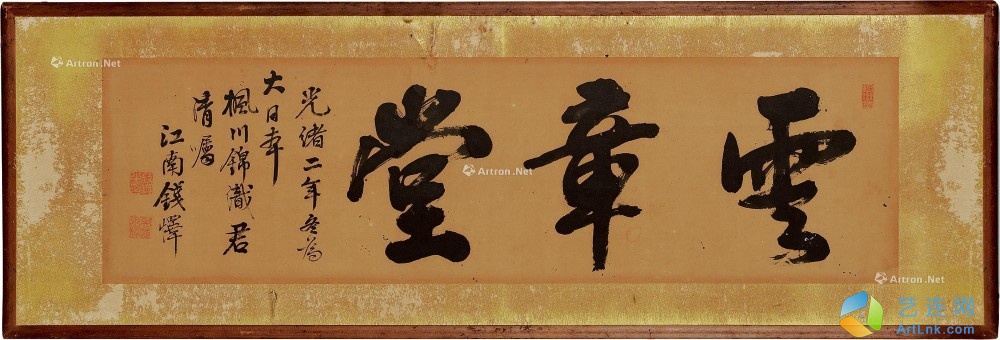 雲章堂
光緒二年冬為
大日本
楓川錦識君
清囑
江南錢懌
Artron.Net
Artron.Net
Artron.Net
艺连网
ArtLnk.com